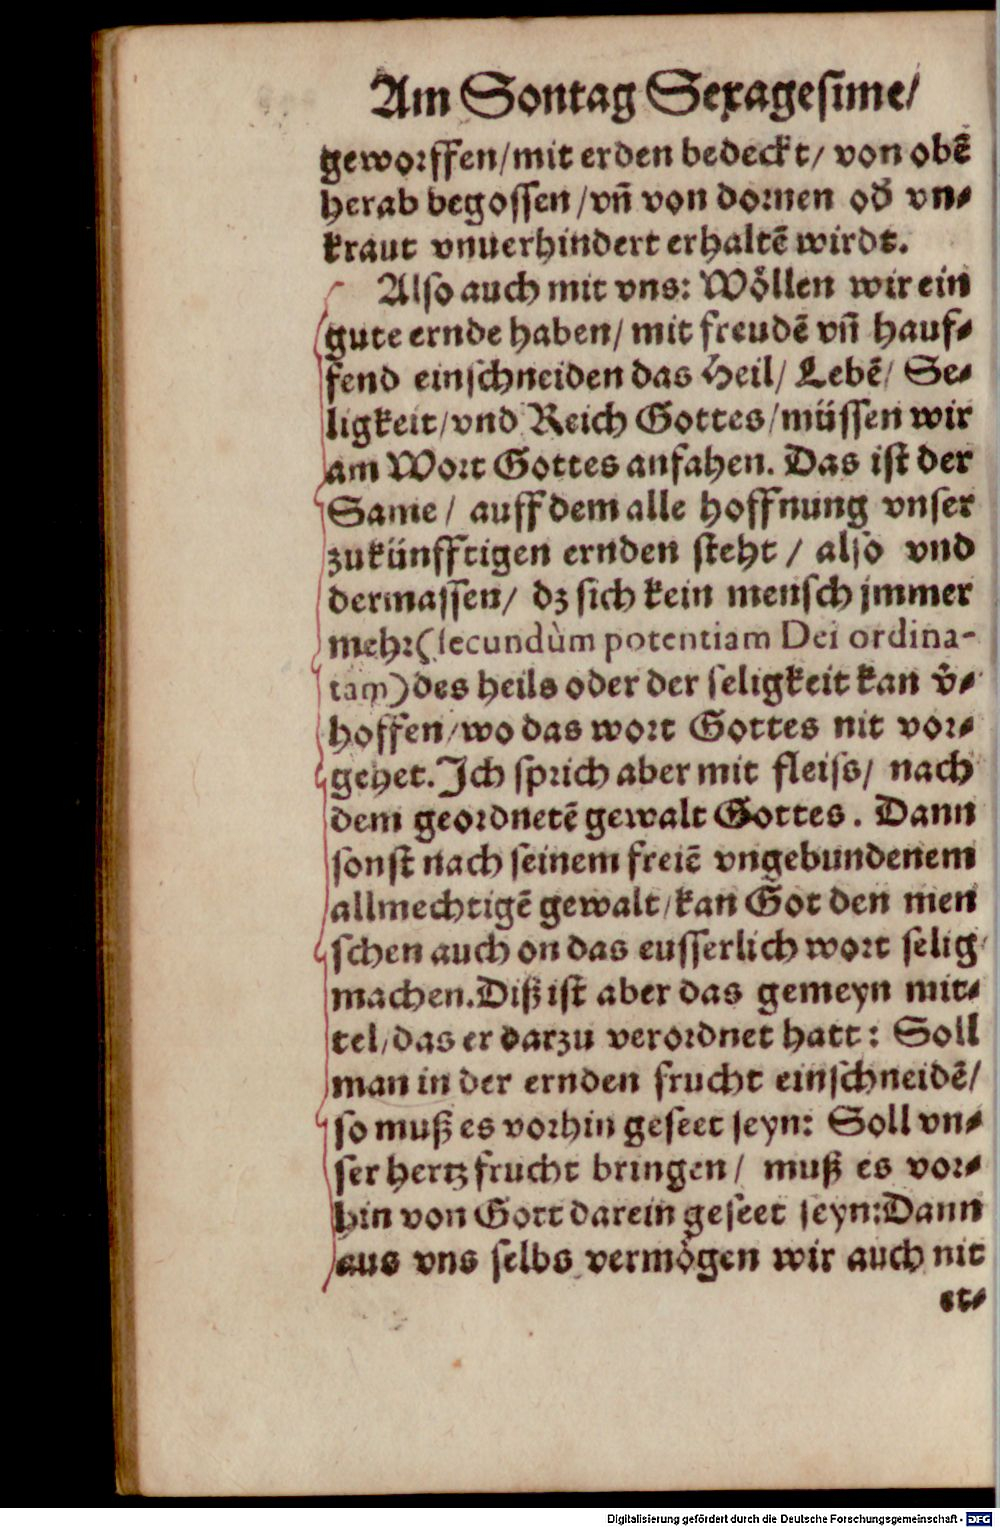 Am Sontag Sexagesime/
geworffen/mit erden bedeckt/ von obē
herab begossen/vn̄ von dornen od̕ vn⸗
kraut vnuerhindert erhaltē wirdt.
Also auch mit vns: Wöllen wir ein
gute ernde haben/ mit freudē vn̄ hauf⸗
fend einschneiden das Heil/ Lebē/ Se⸗
ligkeit/vnd Reich Gottes/müssen wir
am Wort Gottes anfahen. Das ist der
Same/ auff dem alle hoffnung vnser
zukünfftigen ernden steht/ also vnd
dermassen/ dz sich kein mensch jmmer
mehr(secundùm potentiam Dei ordina-
tam)des heils oder der seligkeit kan v̕⸗
hoffen/wo das wort Gottes nit vor⸗
gehet. Ich sprich aber mit fleiss/ nach
dem geordnetē gewalt Gottes. Dann
sonst nach seinem freiē vngebundenem
allmechtigē gewalt/kan Got den men
schen auch on das eusserlich wort selig
machen. Diß ist aber das gemeyn mit⸗
tel/das er darzu verordnet hatt: Soll
man in der ernden frucht einschneidē/
so muß es vorhin geseet seyn: Soll vn⸗
ser hertz frucht bringen/ muß es vor⸗
hin von Gott darein geseet seyn:Dann
aus vns selbs vermögen wir auch nit
et⸗
Digitalisierung gefördert durch die Deutsche Forschungsgemeinschaft - DFG